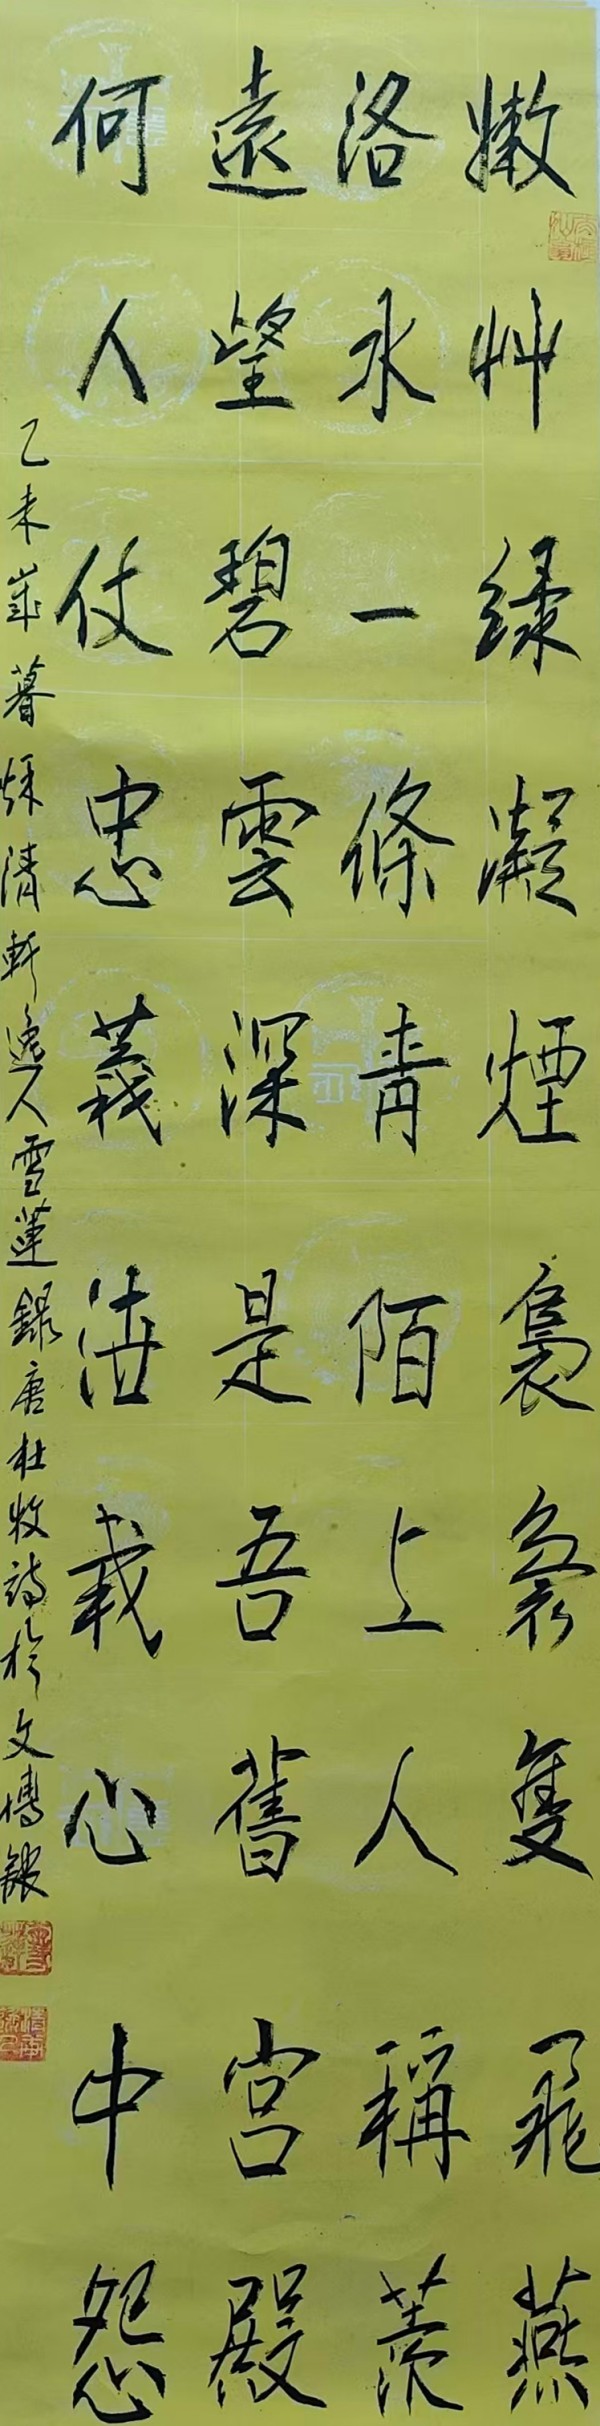 嫩艸绿凝煙裊裊隻飛燕
洛水一條青陌上人稱羨
遠望碧雲深是吾舊宮殿
何人仗忠義洩我心中怨
乙未歲暮烁清軒逸人雪蓮錄唐杜牧詩於文博館